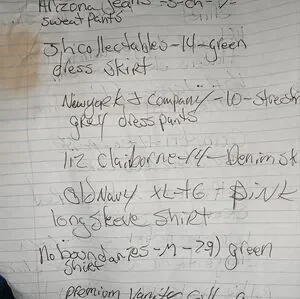 Arizona Jeans
sweat pants
sh collectables-14-green
dress skirt
New york & company-10-
grey dress pants
liz claiborne-14-Denim sk
old Navy XL
PINK
long sleeve shirt
No boundaries-M-29) green
shirt
premium